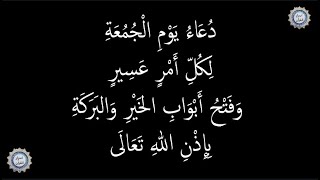 دُعَاءُ يَوْمِ الْجُمُعَةِ
لِكُلِّ أَمْرٍ عَسِيرٍ
وَفَتْحُ أَبْوَابِ الْخَيْرِ وَالبَرَكَةِ
بِإِذْنِ اللهِ تَعَالَى